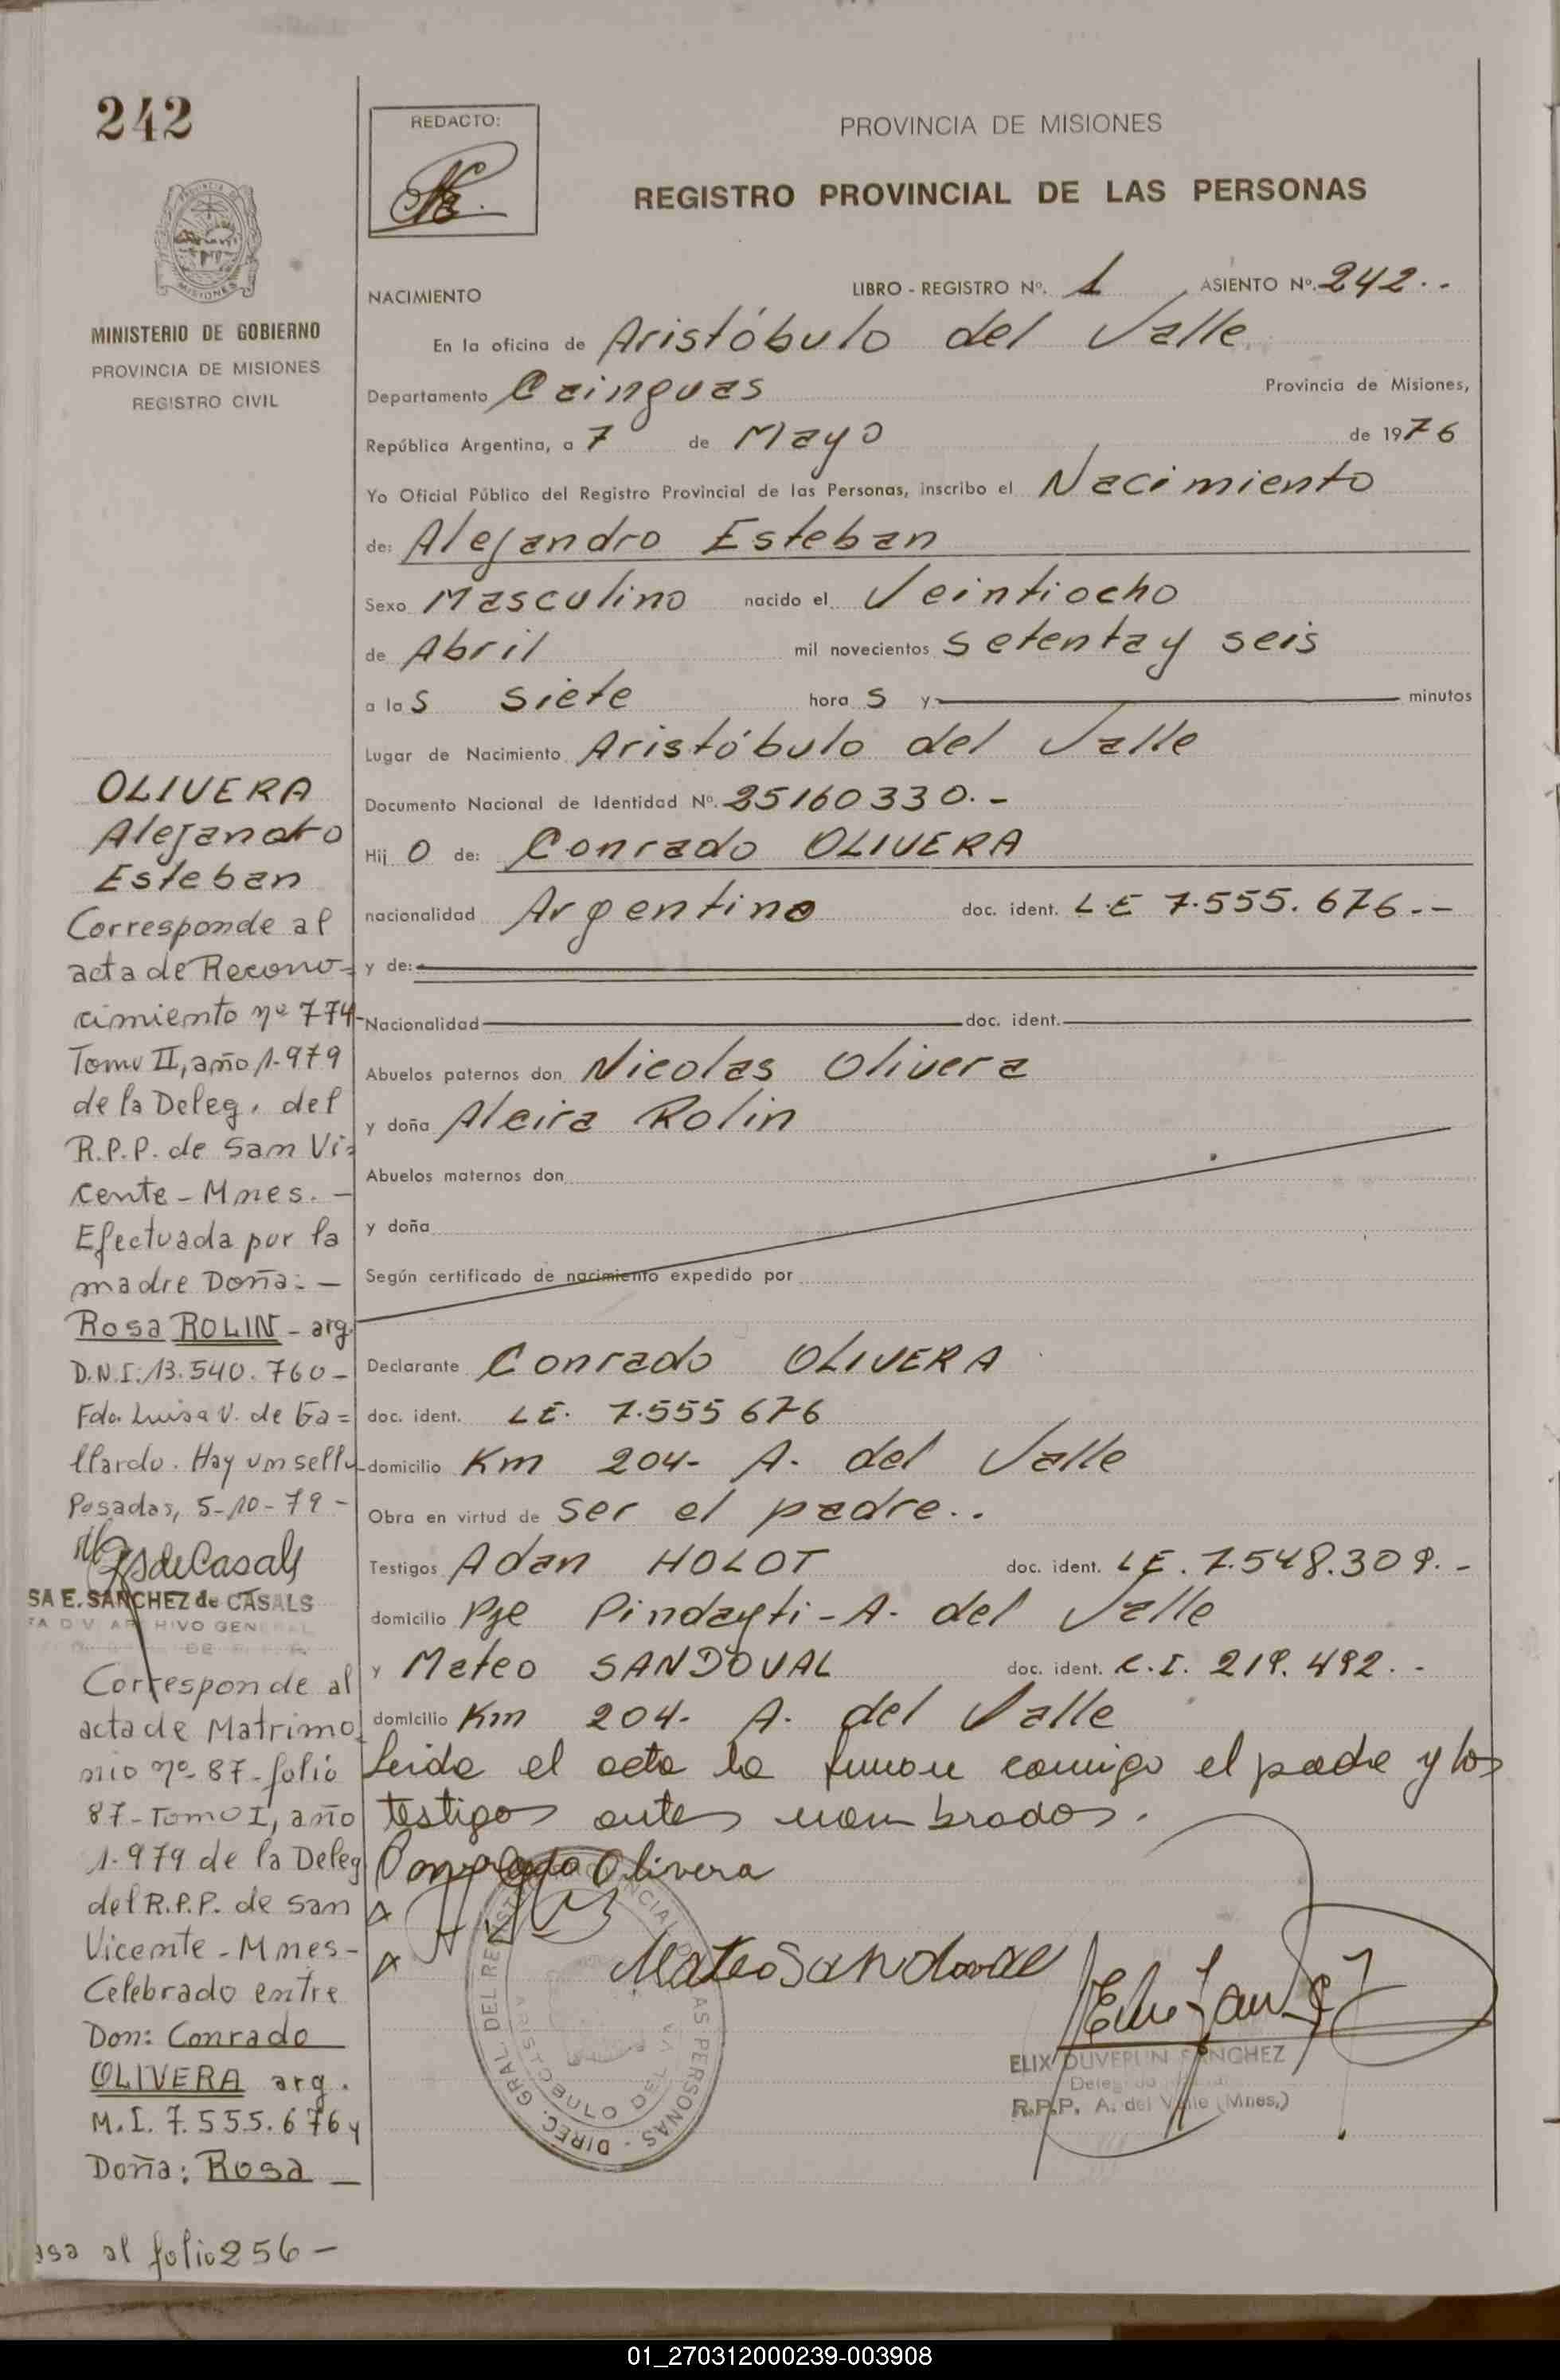 242
MINISTERIO DE GOBIERNO
PROVINCIA DE MISIONES
REGISTRO CIVIL
REDACTO:
PROVINCIA DE MISIONES
REGISTRO PROVINCIAL DE LAS PERSONAS
NACIMIENTO LIBRO - REGISTRO Nº. 1 ASIENTO Nº. 242.-
En la oficina de Aristóbulo del Valle
Departamento Cainguas Provincia de Misiones,
República Argentina, a 7 de Mayo de 1976
Yo Oficial Público del Registro Provincial de las Personas, inscribo el Nacimiento
de: Alejandro Esteban
Sexo Masculino nacido el Veintiocho
de Abril mil novecientos setenta y seis
a las siete horas y minutos
Lugar de Nacimiento Aristóbulo del Valle
Documento Nacional de Identidad Nº. 25160330.-
Hijo de: Conrado OLIVERA
nacionalidad Argentino doc. ident. L.E 7.555.676.-
y de:
Nacionalidad doc. ident.
Abuelos paternos don Nicolas Olivera
y doña Alcira Rolin
Abuelos maternos don
y doña
Según certificado de nacimiento expedido por
Declarante Conrado OLIVERA
doc. ident. LE. 7.555676
domicilio Km 204- A. del Valle
Obra en virtud de ser el padre..
Testigos Adan HOLOT doc. ident. LE. 7.548.309.-
domicilio Pje Pindayti - A. del Valle
y Mateo SANDOVAL doc. ident. C.I. 219.492.-
domicilio Km 204- A. del Valle
Leida el acta la firman comigo el padre y los
testigos antes nombrados.
Conrado Olivera
Mateo Sandoval
ELIX DUVERLIN SANCHEZ
R.P.P. A. del Valle (Mnes.)
DIREC. GRAL. DEL REGISTRO PROVINCIAL DE LAS PERSONAS
ARISTOBULO DEL VA
OLIVERA
Alejandro
Esteban
Corresponde al
acta de Recono=
cimiento nº 774-
Tomo II, año 1.979
de la Deleg. del
R.P.P. de San Vi=
cente - Mnes. -
Efectuada por la
madre Doña: -
Rosa ROLIN - arg.
D.N.I. 13.540.760 -
Fdo. Luisa V. de Ga=
llardo. Hay un sello
Posadas, 5-10-79 -
SA E. SANCHEZ de CASALS
FA DIV ARCHIVO GENERAL
Corresponde al
acta de Matrimo
nio nº 87 - folio
87 - Tomo I, año
1.979 de la Deleg
del R.P.P. de San
Vicente - Mnes -
Celebrado entre
Don: Conrado
OLIVERA arg.
M.I. 7.555.676 y
Doña: Rosa -
asa al folio 256 -
01_270312000239-003908